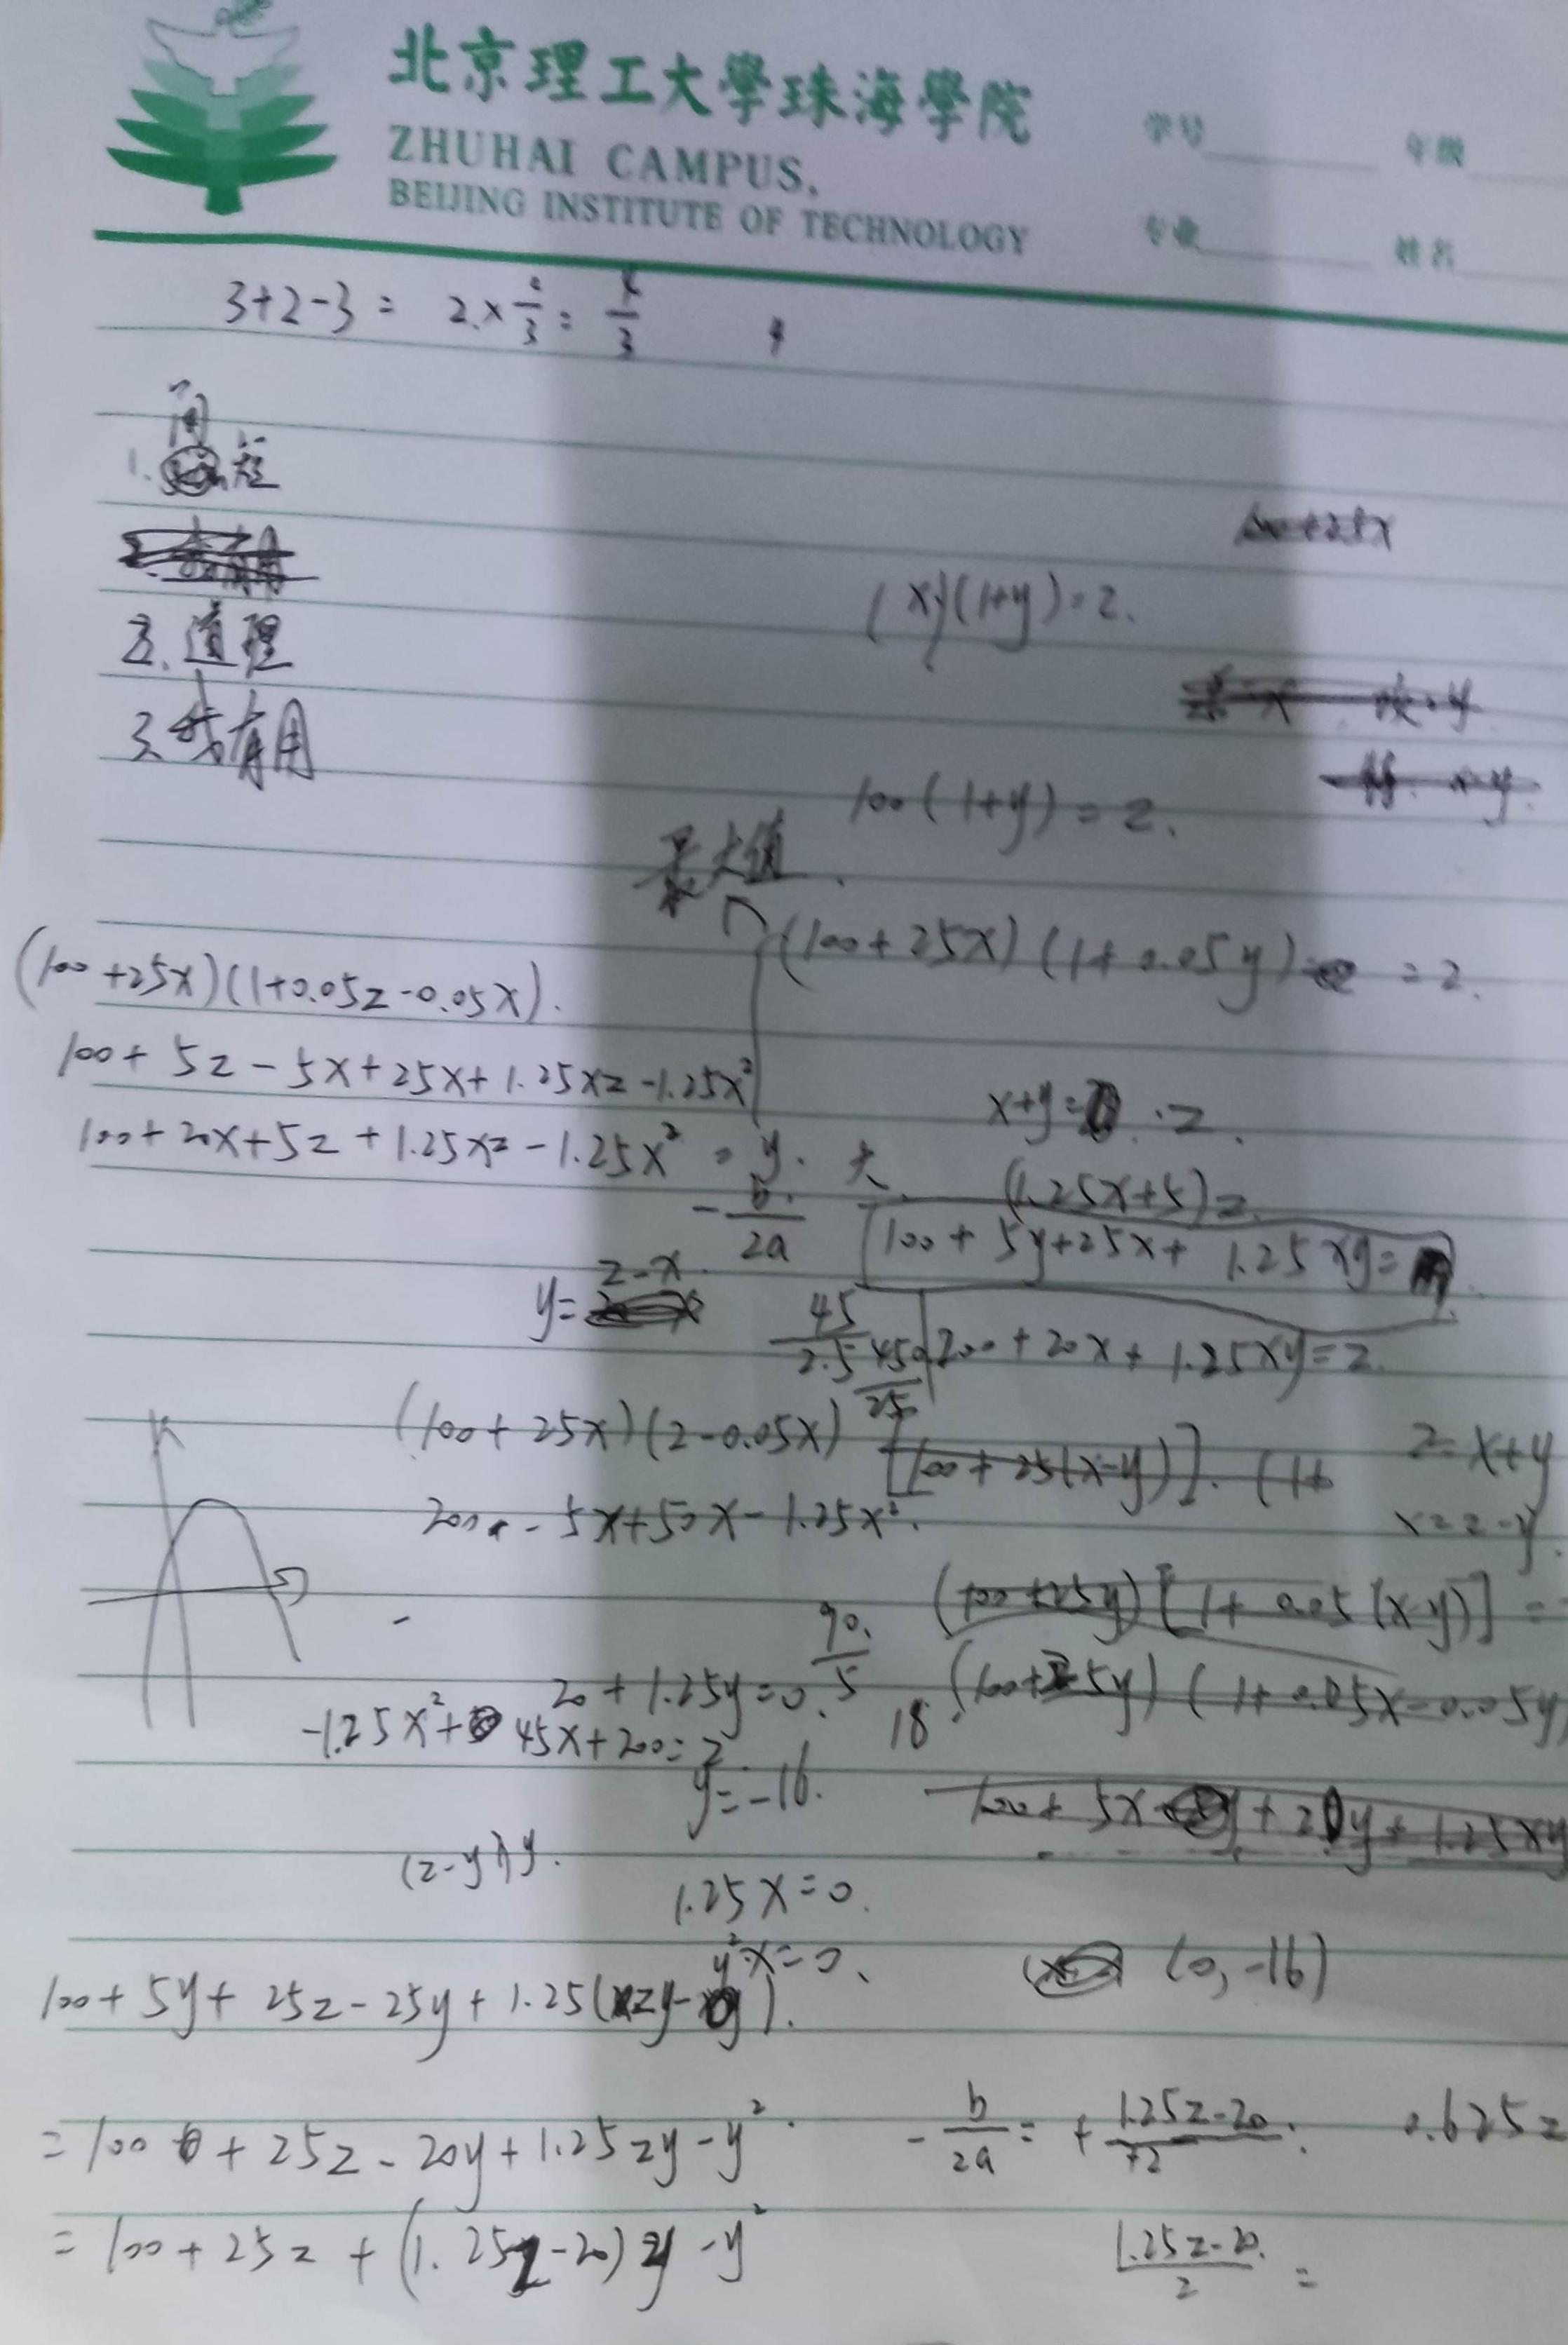 北京理工大學珠海學院
ZHUHAI CAMPUS,
BEIJING INSTITUTE OF TECHNOLOGY
学号 年级
专业 姓名
3+2-3= 2×2/3=4/3 4
1. 简短
2. 道理
3. 我有用
100+25x
(xy)(1+y)=2.
100(1+y)=2.
最大值
(100+25x)(1+0.05y)=2.
(100+25x)(1+0.05z-0.05x).
100+5z-5x+25x+1.25xz-1.25x²
x+y=z.
100+20x+5z+1.25xz-1.25x²=y. 大
-b/2a
(1.25x+5)z
100+5y+25x+1.25xy=
y=z-x
45/2.5 450/25
200+20x+1.25xy=2.
(100+25x)(2-0.05x)
[100+25(x-y)].(1+
z=x+y
x=z-y.
200-5x+50x-1.25x².
(100+25y)[1+0.05(x-y)]=
90/5
20+1.25y=0.
18
(100+25y)(1+0.05x-0.05y)
-1.25x²+45x+200=z
y=-16.
100+5x+20y+1.25xy
(z-y)y.
1.25x=0.
x=0.
(0,-16)
100+5y+25z-25y+1.25(zy-y²).
=100+25z-20y+1.25zy-y².
-b/2a=+(1.25z-20)/+2: 0.625z
=100+25z+(1.25z-20)y-y²
(1.25z-20)/2=